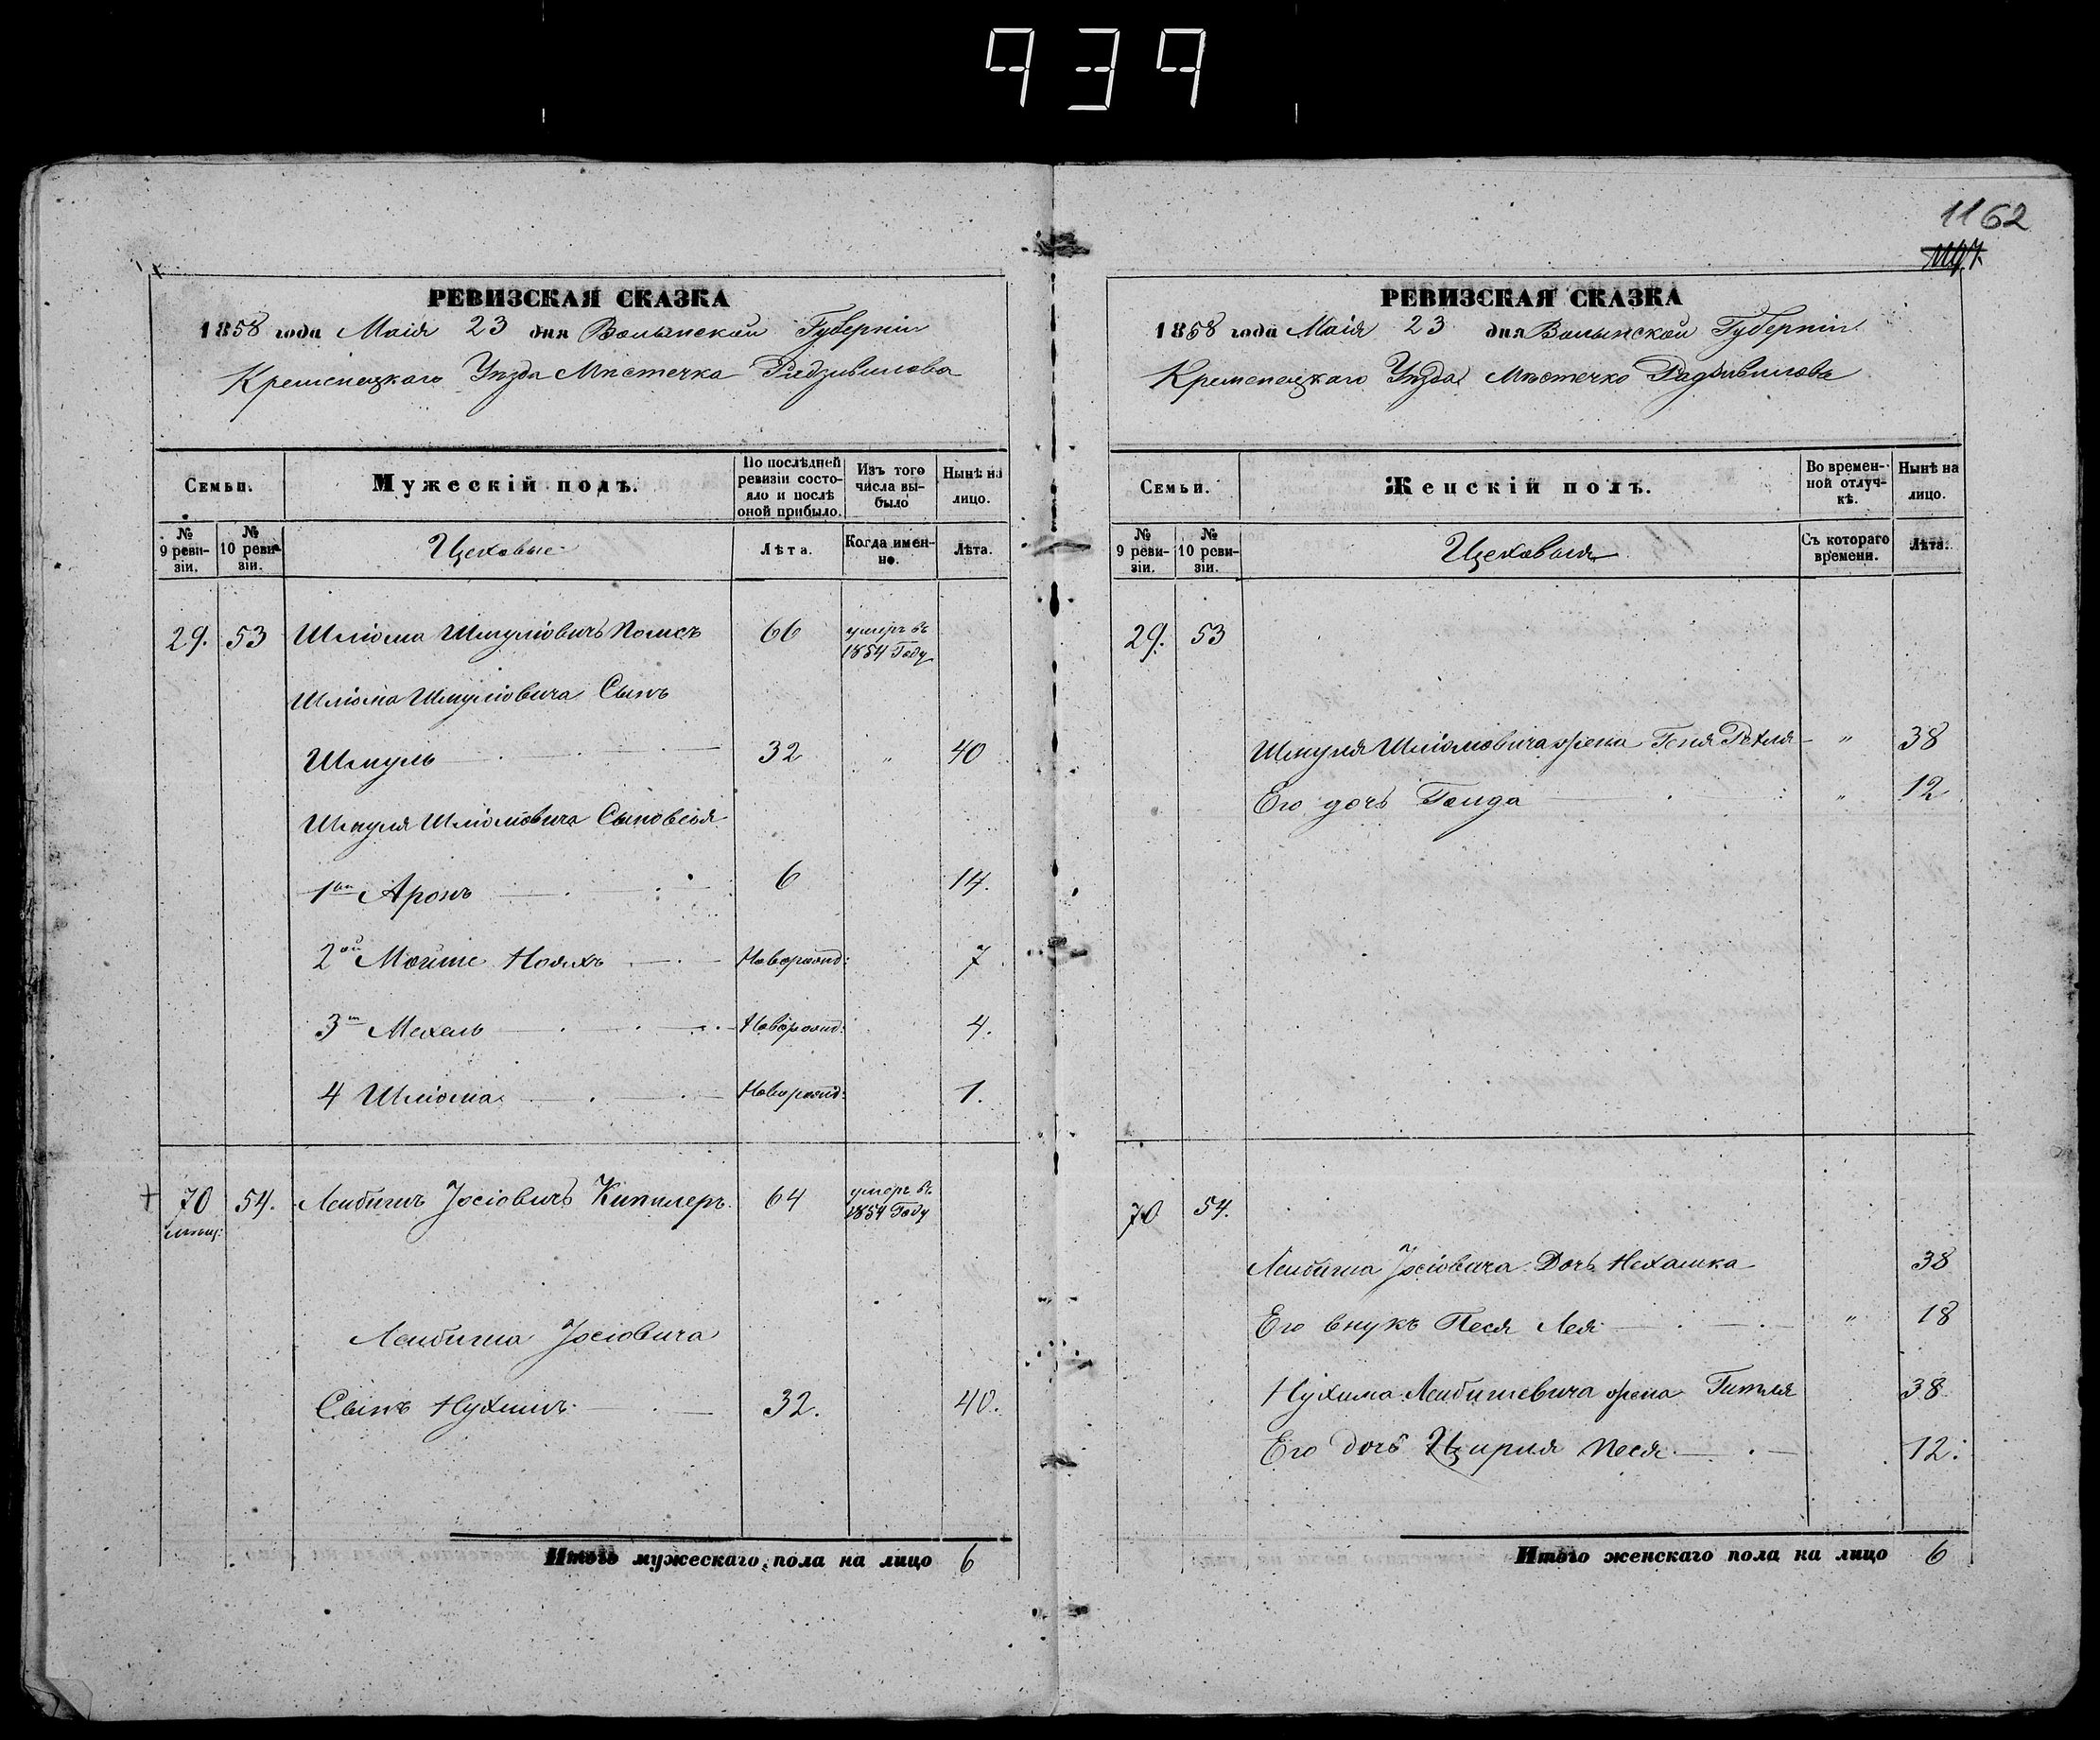 939
1162
РЕВИЗСКАЯ СКАЗКА
1858 года Маія 23 дня Волынской Губерніи
Кременецкаго Уѣзда Мѣстечка Радзивилова
Семьи.
Мужескій полъ.
По послѣдней ревизіи состояло и послѣ оной прибыло.
Изъ того числа выбыло
Нынѣ на лицо.
№ 9 ревизіи.
№ 10 ревизіи.
Цеховые
Лѣта.
Когда именно.
Лѣта.
29. 53 Шліома Шмуліовичъ 66 умеръ въ 1854 Году
Шліома Шмуліовича Сынъ
Шмуль 32 " 40
Шмуля Шліомовича Сыновья
1ый Аронъ 6 14.
2ой Мойше Новорожд: 7
3й Мехель Новорожд: 4.
4 Шліома Новорожд: 1.
70 54. Лейбишъ Іосіовичъ Киптлеръ 64 умеръ въ 1854 Году
Лейбиша Іосіовича
Сынъ Нухимъ 32. 40.
Итого мужескаго пола на лицо 6
РЕВИЗСКАЯ СКАЗКА
1858 года Маія 23 дня Волынской Губерніи
Кременецкаго Уѣзда Мѣстечко Радзивиловъ
Семьи.
Женскій полъ.
Во временной отлучкѣ.
Нынѣ на лицо.
№ 9 ревизіи.
№ 10 ревизіи.
Цеховыя
Съ котораго времени.
Лѣта.
29. 53
Шмуля Шліомовича жена Геня Рехля " 38
Его дочь Голда " 12
70 54.
Лейбиша Іосіовича Дочь Нехамка 38
Его внукъ Песя Лея " 18
Нухима Лейбишевича жена Гитля 38
Его дочь Цирля Песя 12.
Итого женскаго пола на лицо 6